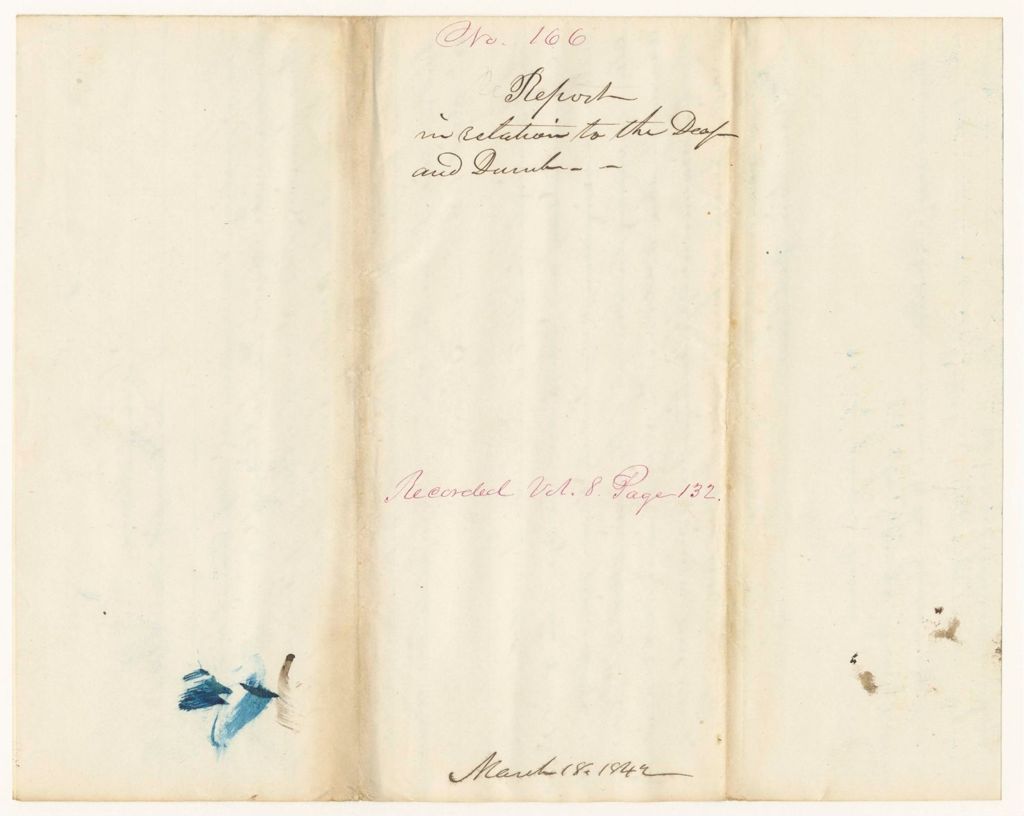 No. 166
Report
in relation to the Deaf
and Dumb - -
Recorded Vol. 8. Page 132.
March 18. 1842